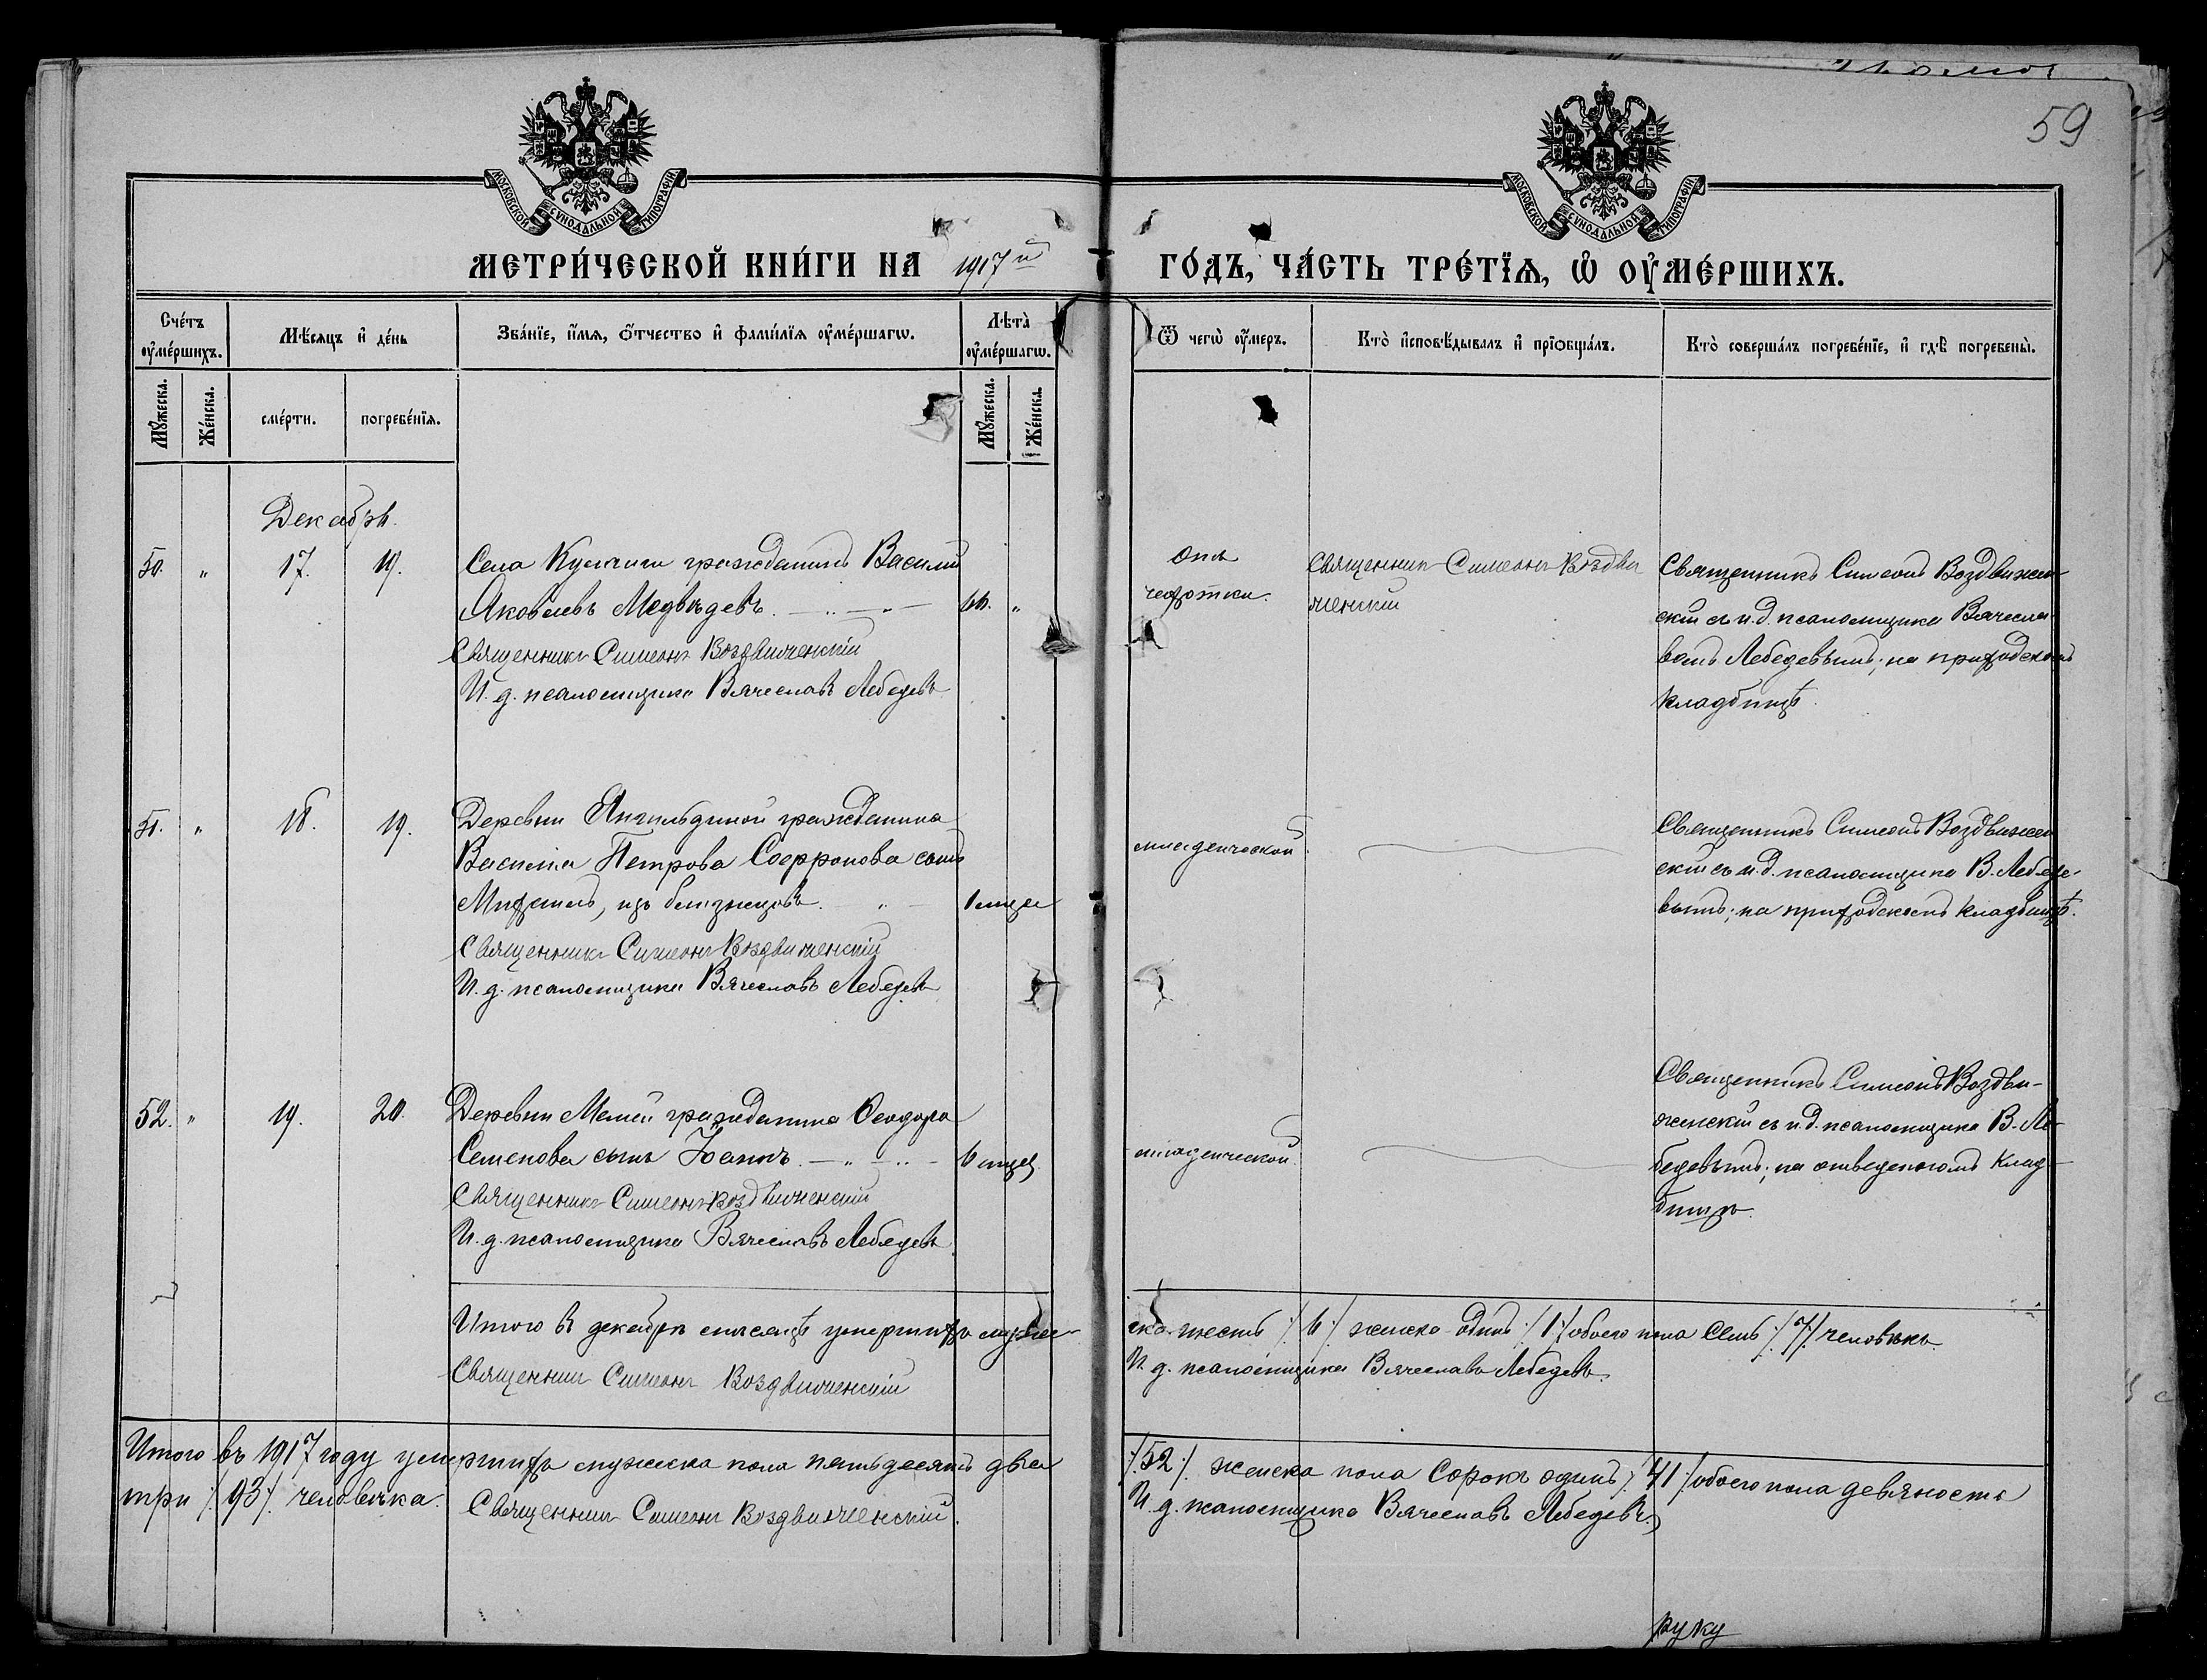 59
МОСКОВСКОЙ СѴНОДАЛЬНОЙ ТИПОГРАФІИ
МОСКОВСКОЙ СѴНОДАЛЬНОЙ ТИПОГРАФІИ
МЕТРИ́ЧЕСКОЙ КНИ́ГИ НА 1917й ГО́ДЪ, ЧА́СТЬ ТРЕ́ТЇѦ, Ѡ҆ ОУ҆МЕ́РШИХЪ.
Сче́тъ оу҆ме́ршихъ.
Мѣ́сяцъ и҆ де́нь
Зва́нїе, и҆́мѧ, ѻ҆́тчество и҆ фами́лїѧ оу҆ме́ршагѡ.
Лѣта̀ оу҆ме́ршагѡ.
Ѿ чегѡ̀ оу҆́меръ.
Кто̀ и҆сповѣ́дывалъ и҆ прїѡбща́лъ.
Кто̀ соверша́лъ погребе́нїе, и҆ гдѣ̀ погребены̀.
Му́жеска.
Же́нска.
сме́рти.
погребе́нїѧ.
Му́жеска.
Же́нска.
Декабрь.
50. " 17. 19. Села гражданинъ Василій
Яковлевъ Медвѣдевъ. 66. "
Священникъ Симеонъ Воздвиженскій
И. д. псаломщика Вячеславъ Лебедевъ
Отъ
чахотки.
Священникъ Симеонъ Воздви
женскій
Священникъ Симеонъ Воздвижен
скій съ и.д. псаломщика Вячесла
вомъ Лебедевымъ; на приходскомъ
кладбищѣ.
51. " 18. 19. Деревни гражданина
Василія Петрова Софронова сынъ
Михаилъ, изъ близнецовъ. 1 мѣся
Священникъ Симеонъ Воздвиженскій
И. д. псаломщика Вячеславъ Лебедевъ
младенческой
Священникъ Симеонъ Воздвижен
скій съ и.д. псаломщика В. Лебеде-
вымъ; на приходскомъ кладбищѣ.
52. " 19. 20. Деревни гражданина Ѳеодора
Семенова сынъ Іоаннъ. 6 мѣся
Священникъ Симеонъ Воздвиженскій
И. д. псаломщика Вячеславъ Лебедевъ
младенческой
Священникъ Симеонъ Воздви-
женскій съ и.д. псаломщика В. Ле-
бедевымъ; на отведенномъ клад-
бищѣ.
Итого въ декабрѣ мѣсяцѣ умершихъ мужес-
ка шесть /6/ женска одинъ /1/ обоего пола семь /7/ человѣкъ
Священникъ Симеонъ Воздвиженскій
И. д. псаломщика Вячеславъ Лебедевъ.
Итого въ 1917 году умершихъ мужеска пола пятьдесятъ два
/52/ женска пола сорокъ одинъ /41/ обоего пола девяносто
три /93/ человѣка.
Священникъ Симеонъ Воздвиженскій.
И. д. псаломщика Вячеславъ Лебедевъ
руку